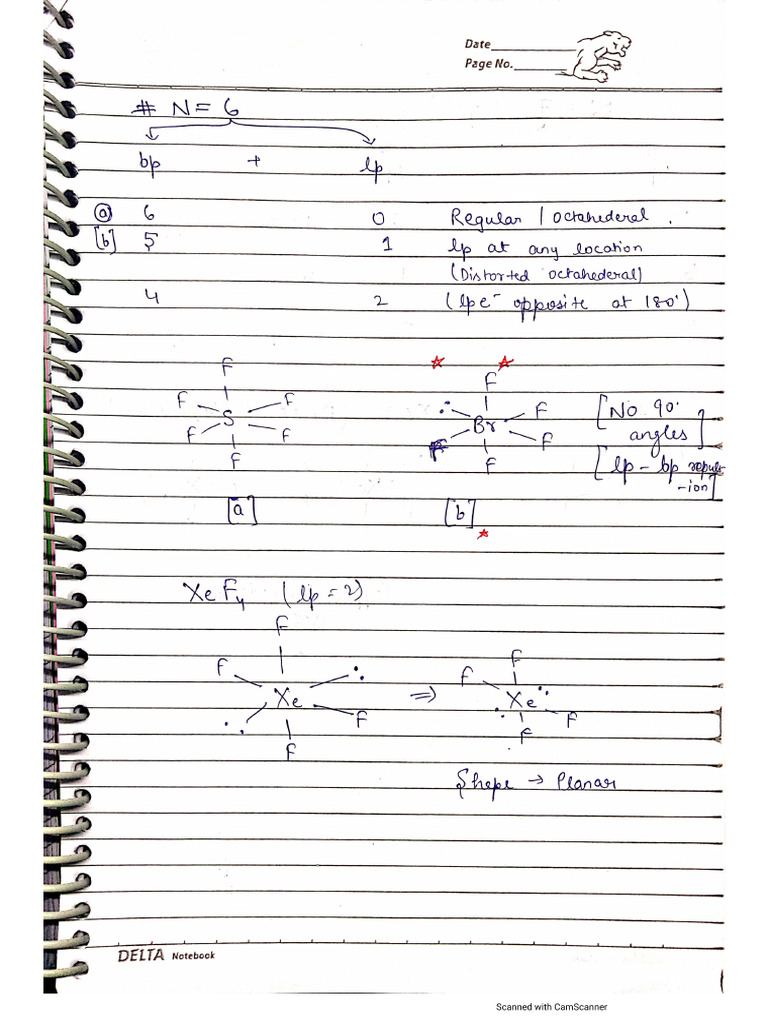 Date
Page No.
# N = 6
bp + lp
(a) 6 0 Regular / octahederal .
[b] 5 1 lp at any location
(Distorted octahederal)
4 2 (lp e⁻ opposite at 180°)
F
F F
S
F F
F
[a]
F
F
Br
F F
F
[b]
[No 90° angles]
[lp - bp repuls
-ion]
XeF₄ (lp = 2)
F
F
Xe
F
F
⇒
F
F
Xe
F
F
Shape → Planar
DELTA Notebook
Scanned with CamScanner